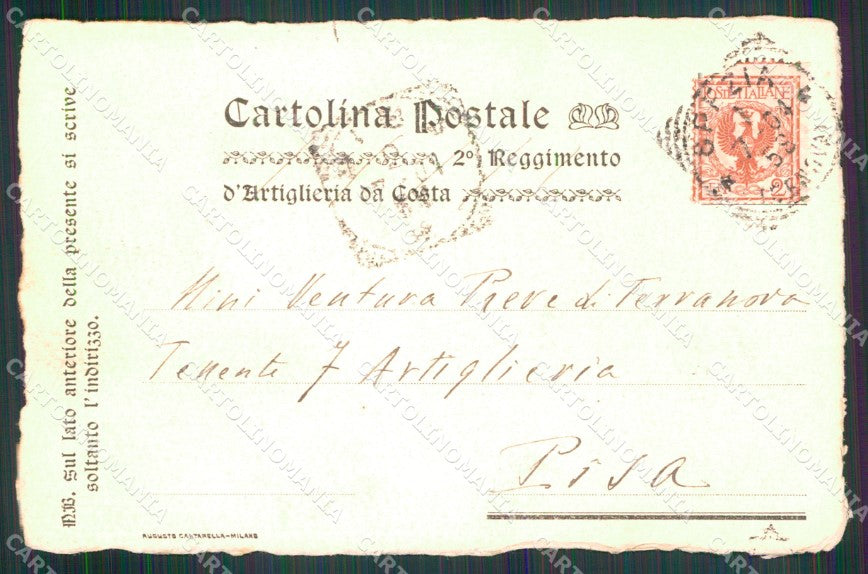 Cartolina Postale
2º Reggimento
d'Artiglieria da Costa
POSTE ITALIANE
SPEZIA
Mini Ventura Pieve di Terranova
Tenente 7 Artiglieria
Pisa
N.B. Sul lato anteriore della presente si scrive
soltanto l'indirizzo.
AUGUSTO CANTARELLA-MILANO
CARTOLINOMANIA